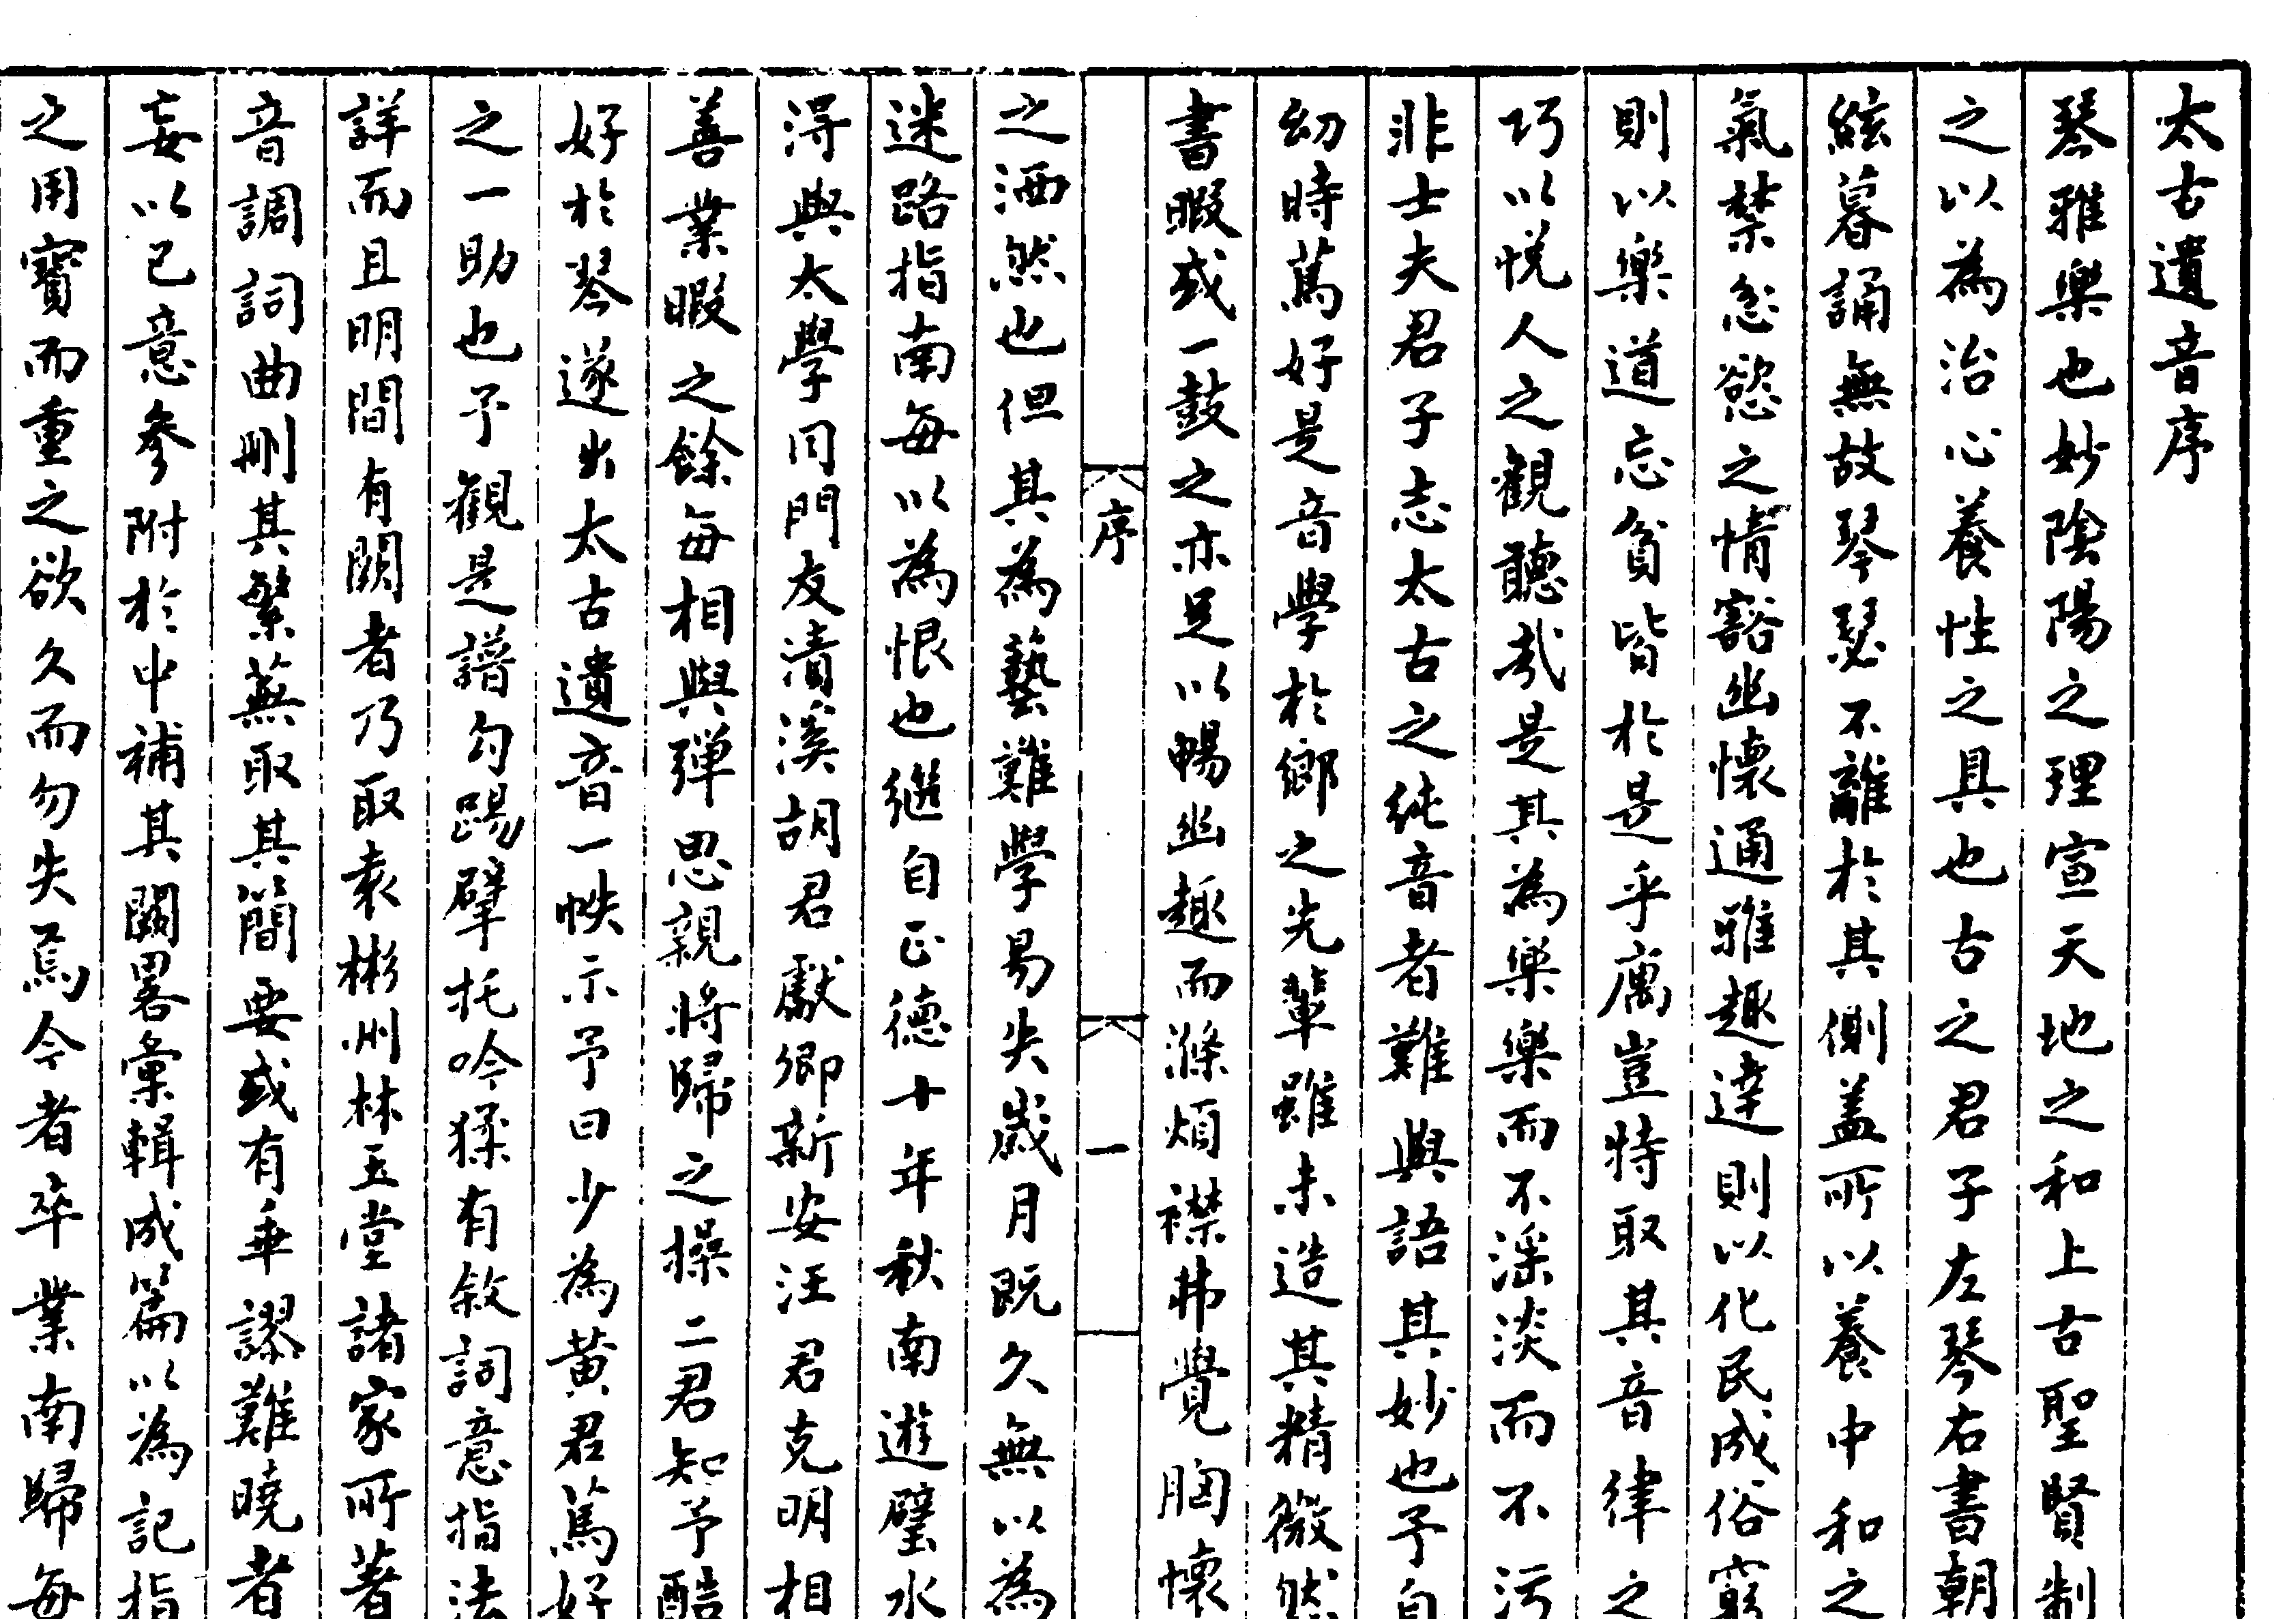 太古遺音序
琴雅樂也妙陰陽之理宣天地之和上古聖賢制
之以為治心養性之具也古之君子左琴右書朝
絃暮誦無故琴瑟不離於其側盖所以養中和之
氣禁忿慾之情豁幽懷通雅趣達則以化民成俗窮
則以樂道忘貧皆於是乎寓豈特取其音律之
巧以悦人之觀聽哉是其為樂樂而不滛淡而不污
非士夫君子志太古之純音者難與語其妙也予自
幼時篤好是音學於鄉之先輩雖未造其精微然
書暇或一鼓之亦足以暢幽趣而滌煩襟弗覺胸懷
序 一
之洒然也但其為藝難學易失歲月既久無以為
迷路指南每以為恨也继自正德十年秋南遊璧水
淂與太學同門友清溪胡君獻卿新安汪君克明相
善業暇之餘每相與弹思親将歸之操二君知予酷
好於琴遂出太古遺音一帙示予曰少為黄君篤好
之一助也予觀是譜勾踢擘托吟猱有敘詞意指法
詳而且明間有闕者乃取袁彬州林玉堂諸家所著
音調詞曲刪其繁蕪取其簡要或有乖謬難曉者
妄以已意參附於中補其闕畧彙輯成篇以為記指
之用寳而重之欲久而勿失焉今者卒業南歸每